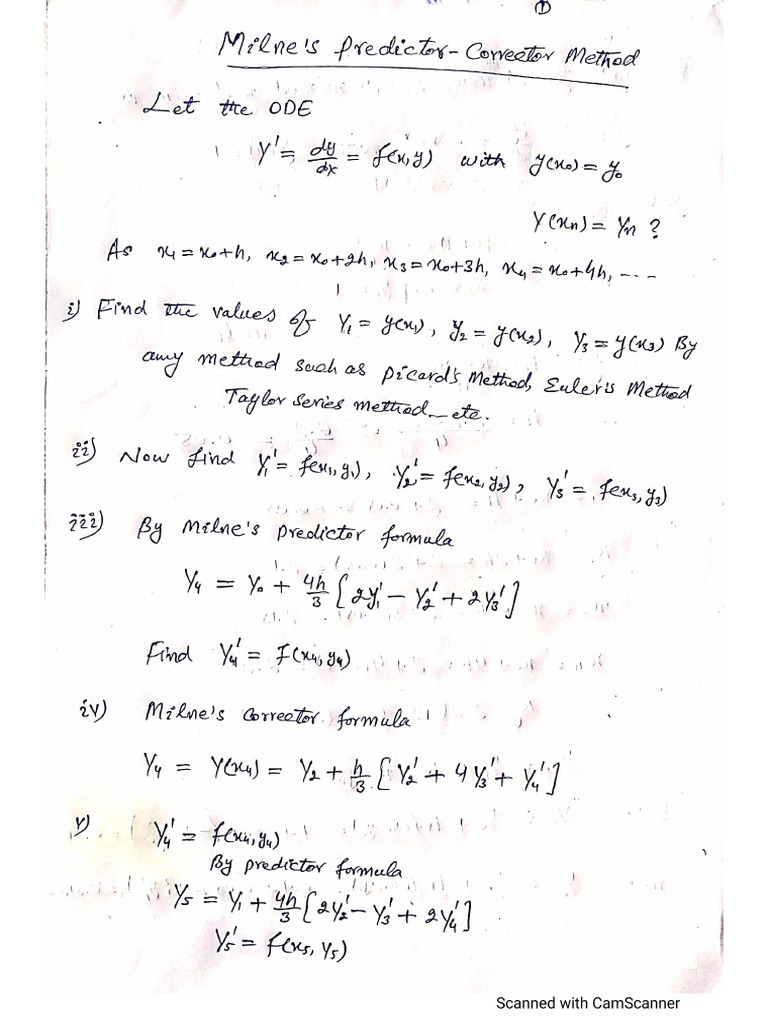 ①
Milne's Predictor-Corrector Method
Let the ODE
Y' = dy/dx = f(x,y) with y(x₀) = y₀
Y(xₙ) = Yₙ ?
As x₁ = x₀+h, x₂ = x₀+2h, x₃ = x₀+3h, x₄ = x₀+4h, ---
i) Find the values of Y₁ = y(x₁), y₂ = y(x₂), Y₃ = y(x₃) By
any method such as Picard's Method, Euler's Method
Taylor series method_etc.
ii) Now find Y₁' = f(x₁,y₁), Y₂' = f(x₂,y₂), Y₃' = f(x₃,y₃)
iii) By Milne's predictor formula
Y₄ = Y₀ + 4h/3 [2y₁' - Y₂' + 2Y₃']
Find Y₄' = f(x₄,y₄)
iv) Milne's corrector formula
Y₄ = Y(x₄) = Y₂ + h/3 [Y₂' + 4Y₃' + Y₄']
v) Y₄' = f(x₄,y₄)
By predictor formula
Y₅ = Y₁ + 4h/3 [2Y₂' - Y₃' + 2Y₄']
Y₅' = f(x₅, Y₅)
Scanned with CamScanner